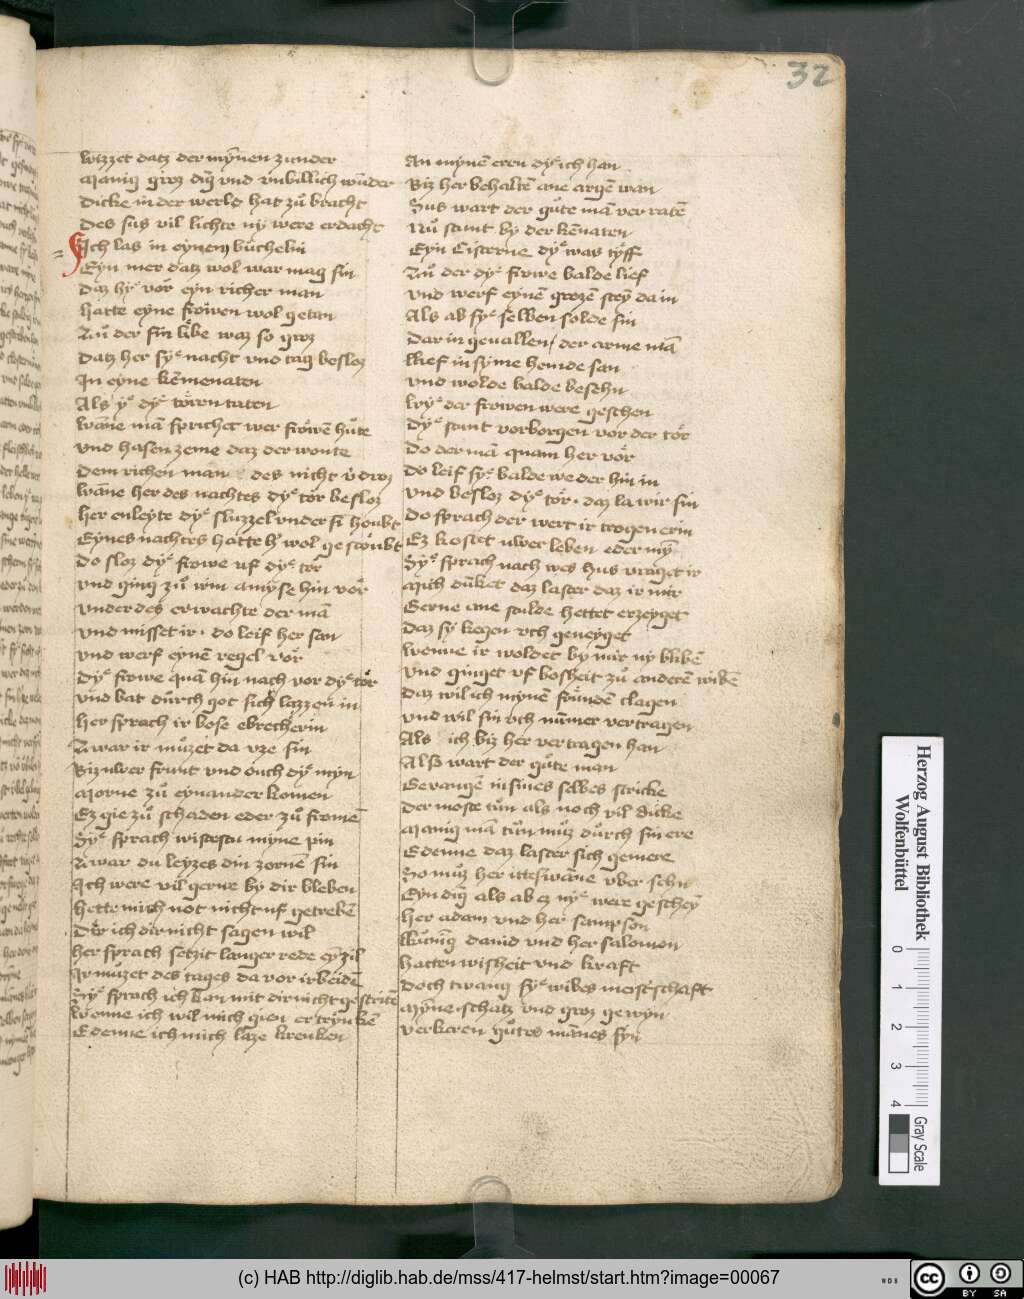 32
wizzet datz der mynen zunder
Manig groz ding vnd vnbillich wunder
Dicke in der werlt hat zu bracht
Des sus vil lichte ny were erdacht
Ich las in eynem buchelin
Eyn mer datz wol war mag sin
Daz hy vor eyn richer man
hatte eyne frowen wol getan
Zu der sin libe waz so groz
Datz her sy nacht vnd tag besloz
In eyne kemenaten
Als y dy toren taten
wanne man sprichet wer frowen hute
vnd hasen zeme daz der wonte
Dem richen man des nicht v droz
wanne her des nachtes dye tor besloz
her enleyte dye sluzzel vnder sin houbt
Eynes nachtes hatte her wol gestoubt
Do sloz dye frowe uf dye tor
vnd ging zu irm amyse hin vor
vnder des erwachte der man
vnd misset ir. do leif her san
vnd werf eynen regel vor
dye frowe quam hin nach vor dye tor
vnd bat durch got sich lazzen in
her sprach ir bose ebrecherin
Zwar ir muzet da vze sin
Biz uwer frunt vnd ouch dye myn
Morne zu eynander komen
Ez gie zu schaden eder zu fromen
Sye sprach wistestu myne pin
Zwar du leyzes din zornen sin
Ich were vil gerne by dir bleben
hette mich not nicht uf getreben
Der ich dir nicht sagen wil
her sprach setzit langer rede eyn zil
Ir muzet des tages da vor irbeiden
Sye sprach ich kan mit dir nicht gestriten
wenne ich wil mich gien ertrynken
E denne ich mich laze krenken
An mynen eren dye ich han
Biz her behalten ane argen wan
Sus wart der gute man verraten
Nu stunt by der kemenaten
Eyn Cisterne dye was tyff
Zu der dye frowe balde lief
vnd werf eynen grozen steyn da in
Als ab sye selben solde sin
Dar in geuallen, der arme man
lief in syme hemde san
vnd wolde balde besehn
wye der frowen were geschen
dye stunt vorborgen vor der tor
Do der man quam her vor
do leif sye balde weder hin in
vnd besloz dye tor. daz la wir sin
Do sprach der wert ir trogenerin
Ez kostet uwer leben eder myn
Sye sprach nach wes hus vraget ir
Mich dunket daz laster daz ir mir
Gerne ane sculde hettet erzeyget
Daz sy kegen uch geneyget
wenne ir woldet by mir ny bliben
vnd ginget vf bosheit zu anderen wiben
daz wil ich mynen frunden clagen
vnd wil sin uch nummer vertragen
Als ich biz her vertragen han
Alsus wart der gute man
Gevangen in sines selbes stricke
der moste tun als noch vil dicke
Manig man tun muz durch sin ere
E denne daz laster sich gemere
So muz her itteswanne vber sehn
Eyn ding als ab ez nye were geschen
her adam vnd her sampson
kunig dauid vnd her salomon
hatten wisheit vnd kraft
Doch twang sye wibes meisterschaft
Myne. schatz vnd groz gewyn
verkeren gutes mannes syn
Herzog August Bibliothek
Wolfenbüttel
0 1 2 3 4
Gray Scale
(c) HAB http://diglib.hab.de/mss/417-helmst/start.htm?image=00067
WDB
cc BY SA